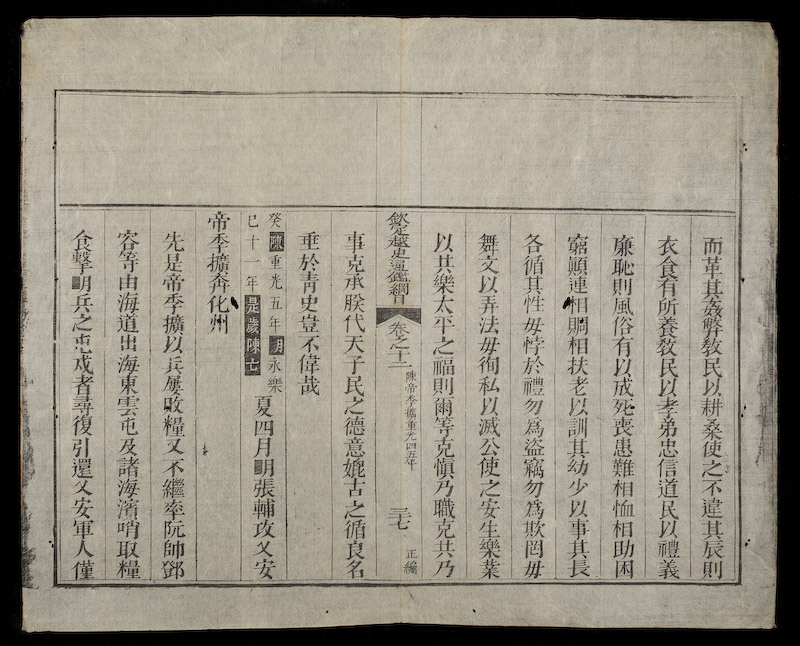 而革其姦弊敎民以耕桑使之不違其辰則
衣食有所養敎民以孝弟忠信道民以禮義
廉恥則風俗有以成死喪患難相恤相助困
窮顚連相賙相扶老以訓其幼少以事其長
各循其性毋悖於禮勿爲盜竊勿爲欺罔毋
舞文以弄法毋徇私以滅公使之安生樂業
以其樂太平之福則爾等克愼乃職克共乃
欽定越史通鑑綱目 卷之十二 陳帝季擴重光四五年 三七 正編
事克承朕代天子民之德意媲古之循良名
垂於靑史豈不偉哉
癸巳 陳重光五年明永樂十一年是歲陳亡 夏四月明張輔攻乂安
帝季擴奔化州
先是帝季擴以兵屢敗糧又不繼率阮帥鄧
容等由海道出海東雲屯及諸海濱哨取糧
食擊明兵之屯戍者尋復引還乂安軍人僅